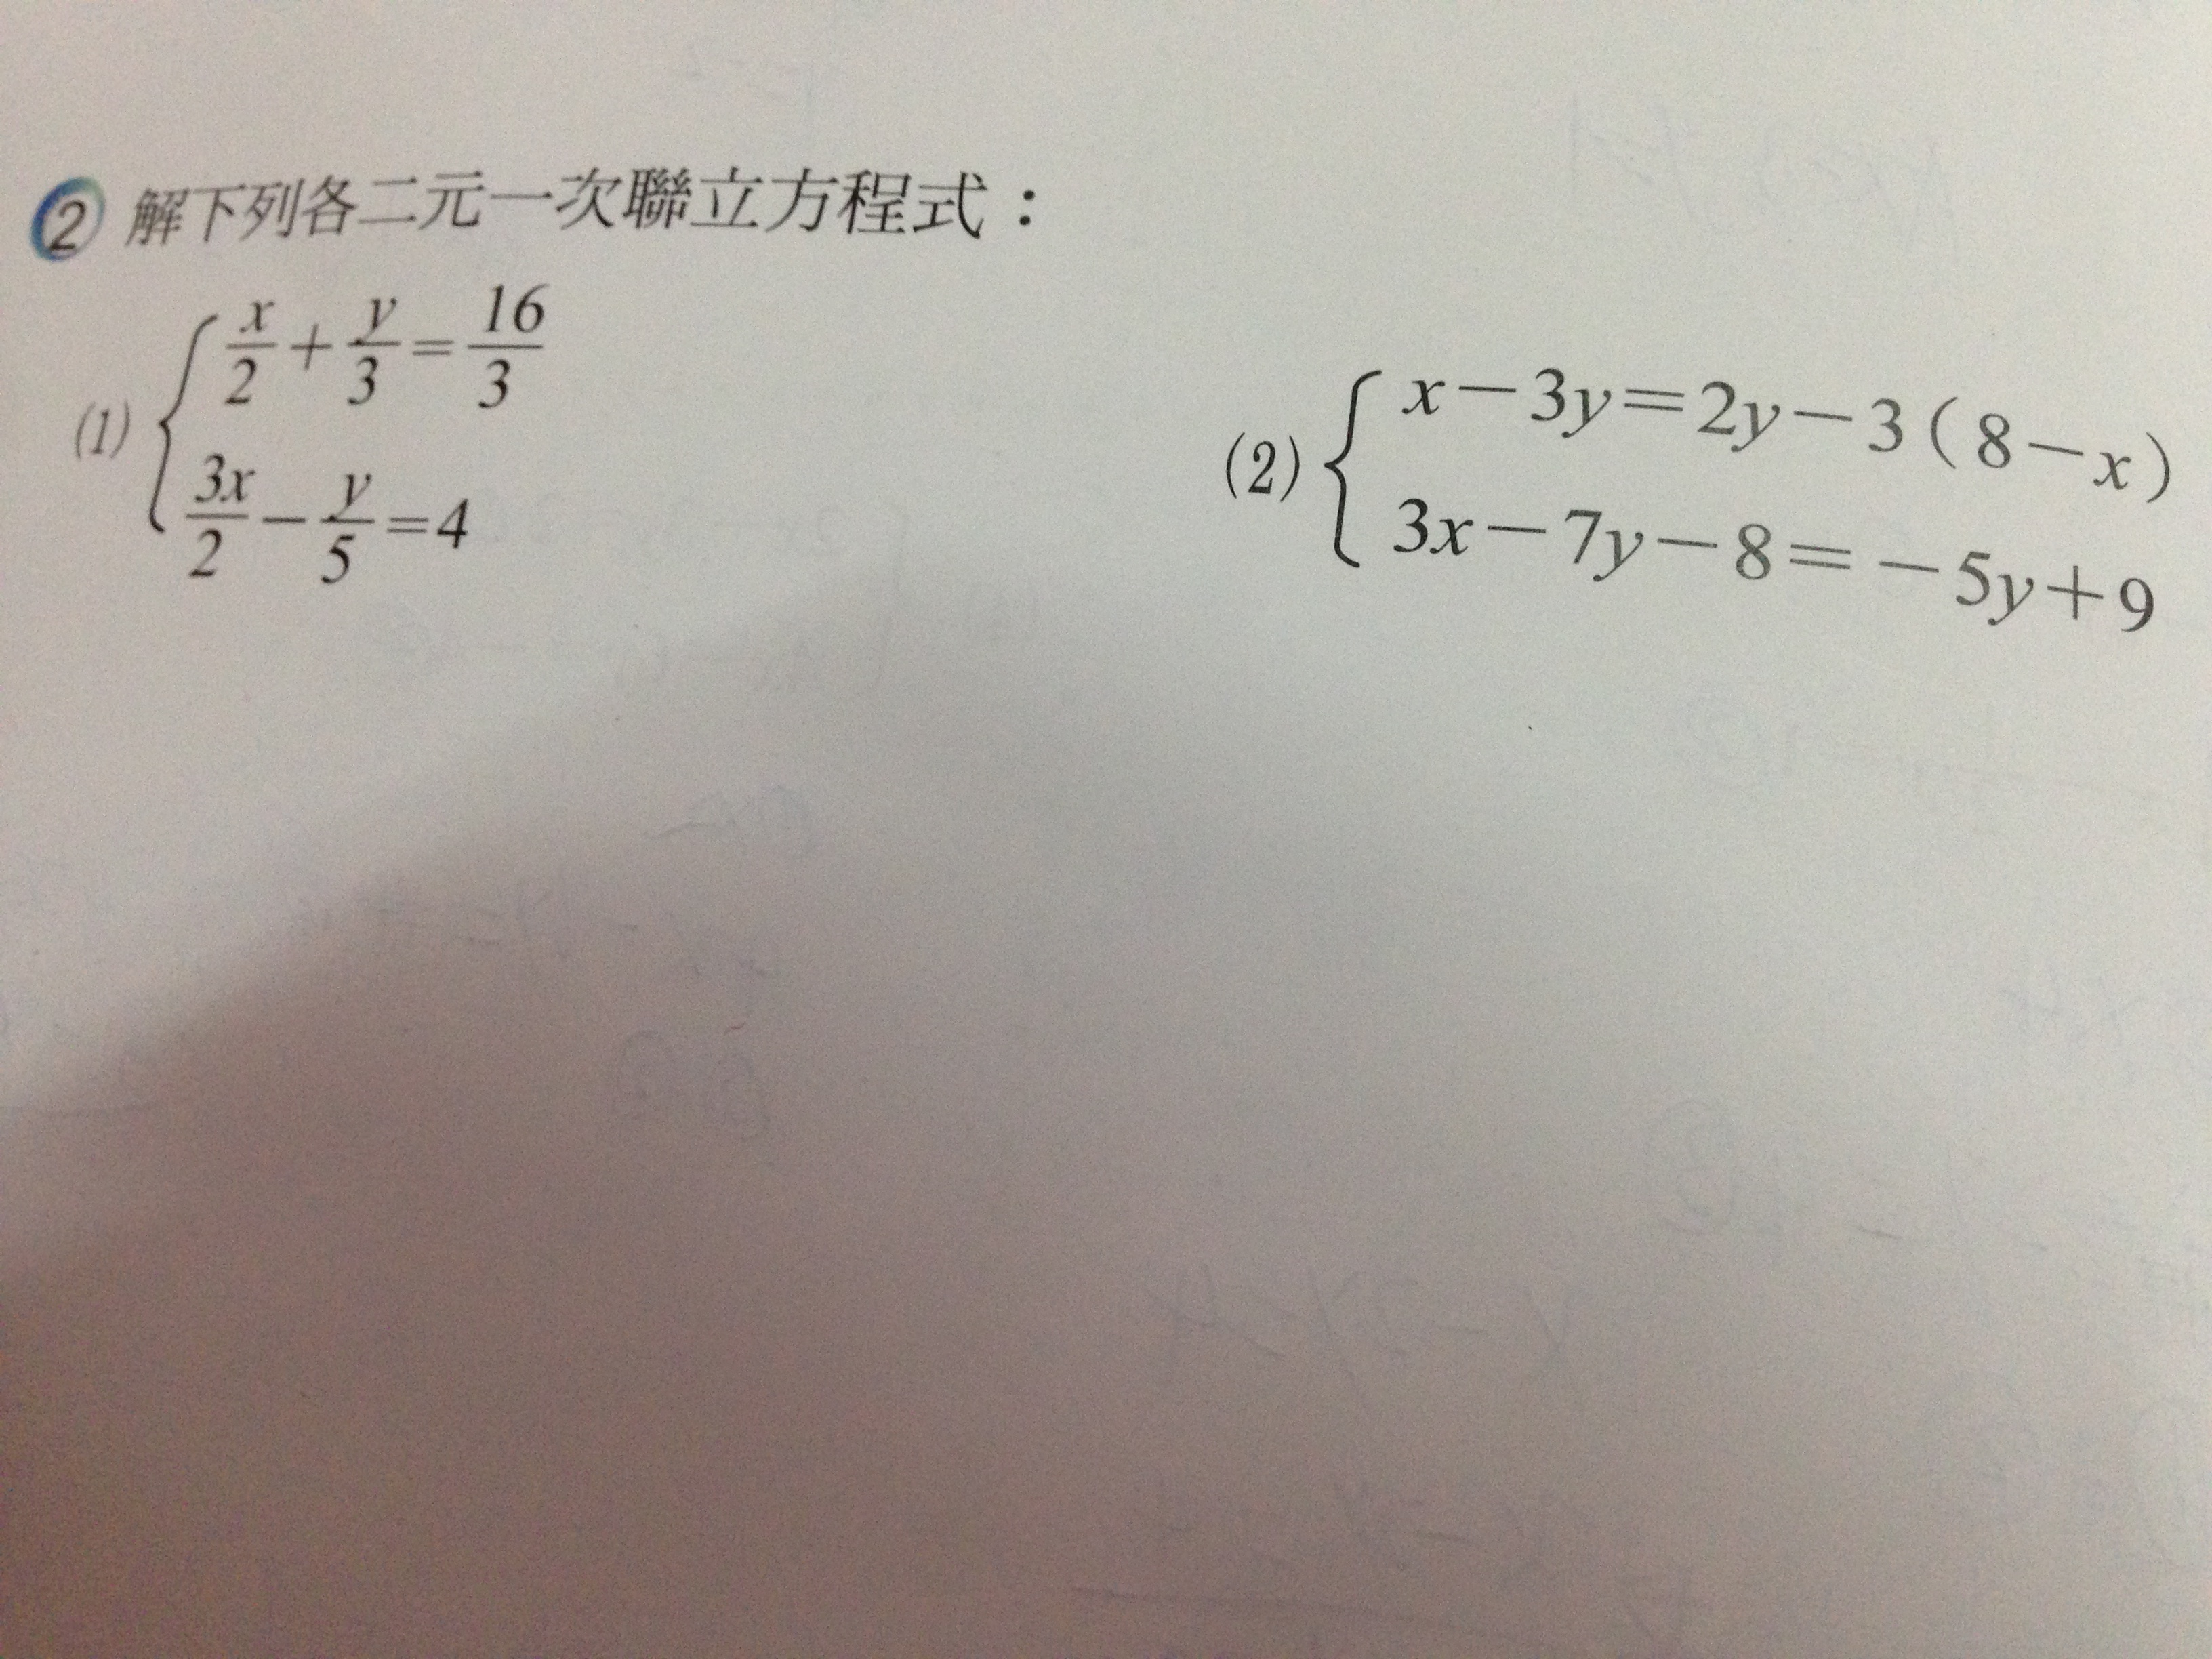 ② 解下列各二元一次聯立方程式：
(1) { x/2 + y/3 = 16/3
3x/2 − y/5 = 4
(2) { x−3y=2y−3(8−x)
3x−7y−8=−5y+9